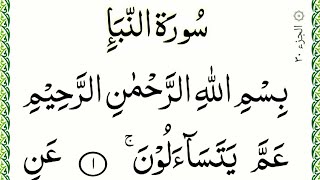 سُورَةُ النَّبَإِ
الجزء ٣٠
بِسْمِ اللهِ الرَّحْمٰنِ الرَّحِيْمِ
عَمَّ يَتَسَآءَلُوْنَ ۚ ١ عَنِ